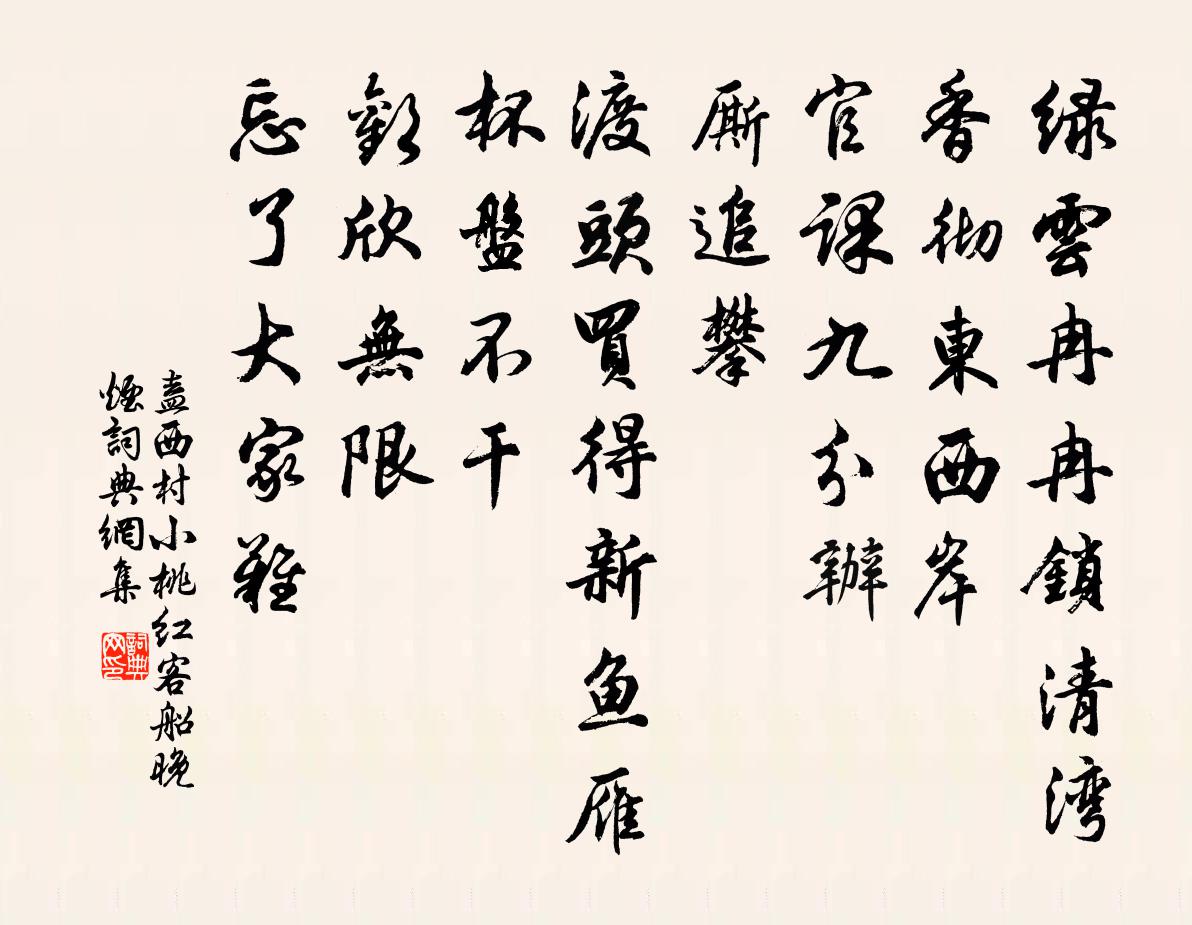 绿雲冉冉鎖清湾
香彻東西岸
官课九分辦
厮追攀
渡頭買得新鱼雁
杯盤不干
歡欣無限
忘了大家難
盍西村小桃红客船晚
煙詞典網集
詞典网印